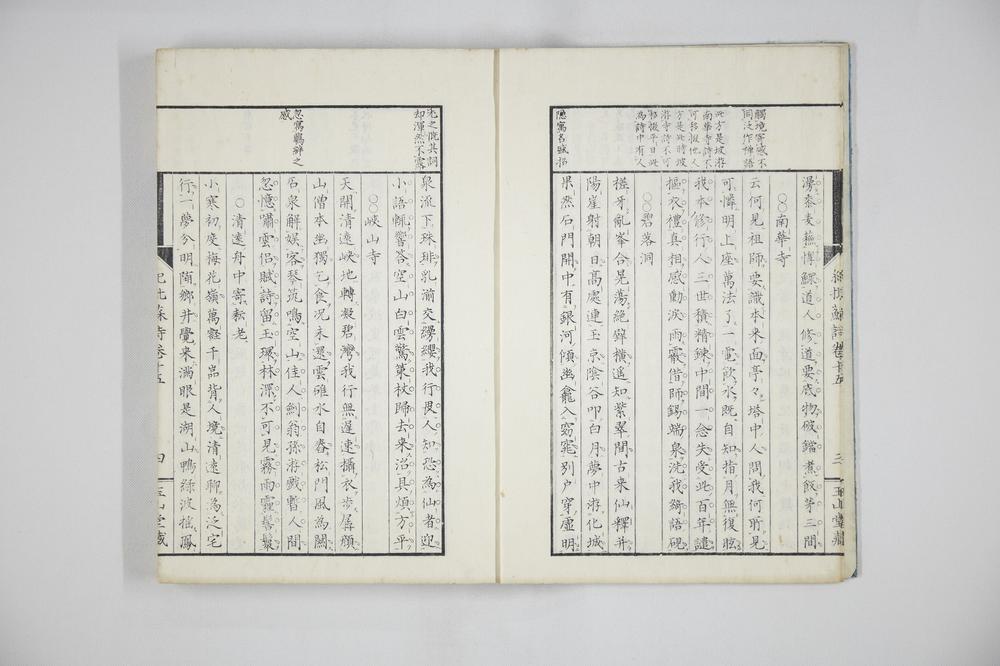 觸境寄感不
同泛作禪語
此方是坡游
南華寺詩不
可移掇他人
方是此時坡
游寺詩不可
移掇平日此
為詩中有人
漫黍麥蘇惸鰥道人修道要底物破鐺煮飯茅三間
○○南華寺
云何見祖師要識本来面亭々塔中人問我何所見
可憐明上座萬法了一電飲水既自知指月無復眩
我本修行人三世積精鍊中間一念失受此百年譴
摳衣禮真相感動淚雨霰借師錫端泉洗我綺語硯
○○碧落洞
槎牙亂峯合晃蕩絕壁橫遥知紫翠間古来仙釋并
陽崖射朝日高處連玉京陰谷叩白月夢中游化城
果然石門開中有銀河傾幽龕入窈窕別戶穿虛明
三
玉山堂藏
却渾然不露
忽寓
感
泉流下珠琲乳湽交縵纓我行畏人知恐為仙者迎
小語輒響答空山白雲驚策杖歸去来治具煩方平
○○峽山寺
天開清遠峽地轉凝碧灣我行無遲速攝衣步孱顔
山僧本幽獨乞食况未還雲碓水自舂松門風為關
石泉解娱客琴筑鳴空山佳人劍翁孫游戲暫人間
忽憶嘯雲侶賦詩留玉環林深不可見霧雨霾髻鬟
○清遠舟中寄耘老
小寒初度梅花嶺萬壑千巖背人境清遠聊為泛宅
行一夢分明墮鄉井覺来滿眼是湖山鴨綠波搖鳳
紀批蘇詩卷十五
四
玉山堂藏